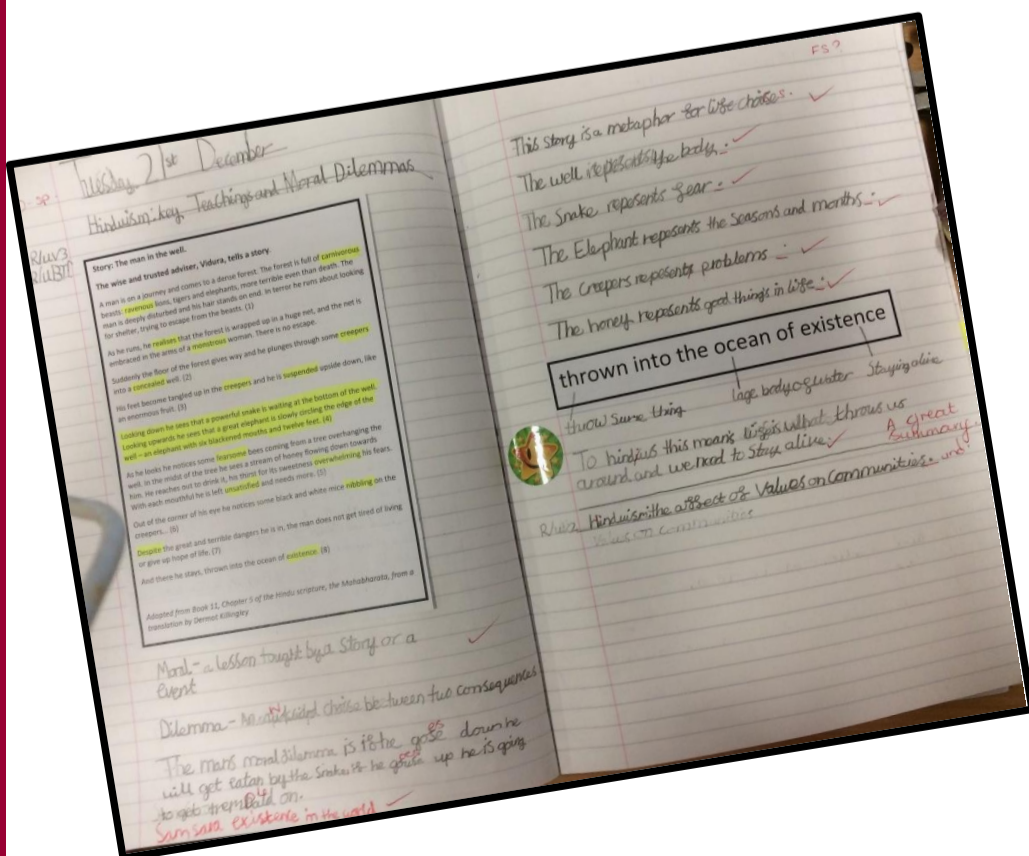 Tuesday 21st December
Hinduism: key, Teachings and Moral Dilemmas
Story: The man in the well.
The wise and trusted adviser, Vidura, tells a story.
A man is on a journey and comes to a dense forest. The forest is full of carnivorous
beasts: ravenous lions, tigers and elephants, more terrible even than death. The
man is deeply disturbed and his hair stands on end. In terror he runs about looking
for shelter, trying to escape from the beasts. (1)
As he runs, he realises that the forest is wrapped up in a huge net, and the net is
embraced in the arms of a monstrous woman. There is no escape.
Suddenly the floor of the forest gives way and he plunges through some creepers
into a concealed well. (2)
His feet become tangled up in the creepers and he is suspended upside down, like
an enormous fruit. (3)
Looking down he sees that a powerful snake is waiting at the bottom of the well.
Looking upwards he sees that a great elephant is slowly circling the edge of the
well – an elephant with six blackened mouths and twelve feet. (4)
As he looks he notices some fearsome bees coming from a tree overhanging the
well. In the midst of the tree he sees a stream of honey flowing down towards
him. He reaches out to drink it, his thirst for its sweetness overwhelming his fears.
With each mouthful he is left unsatisfied and needs more. (5)
Out of the corner of his eye he notices some black and white mice nibbling on the
creepers... (6)
Despite the great and terrible dangers he is in, the man does not get tired of living
or give up hope of life. (7)
And there he stays, thrown into the ocean of existence. (8)
Adapted from Book 11, Chapter 5 of the Hindu scripture, the Mahabharata, from a
translation by Dermot Killingley
Moral - a lesson tought by a Story or a
event
Dilemma - An choise between two consequences
The mans moral dilemma is if he down he
will get eatan by the Snake if he up he is going
to get on.
Samsara existence in the world
FS?
This story is a metaphor for life choises.
The well repesents the body.
The Snake reposents fear.
The Elephant reposents the Seasons and months
The Creepers reposents problems
The honey represents good things in life.
thrown into the ocean of existence
throw Some thing
lage body of water
Staying alive
To hindjus this means life is what throws us
around and we need to Stay alive.
A great
summary.
Hinduism: the affect of Values on Communities.
Values on Communities